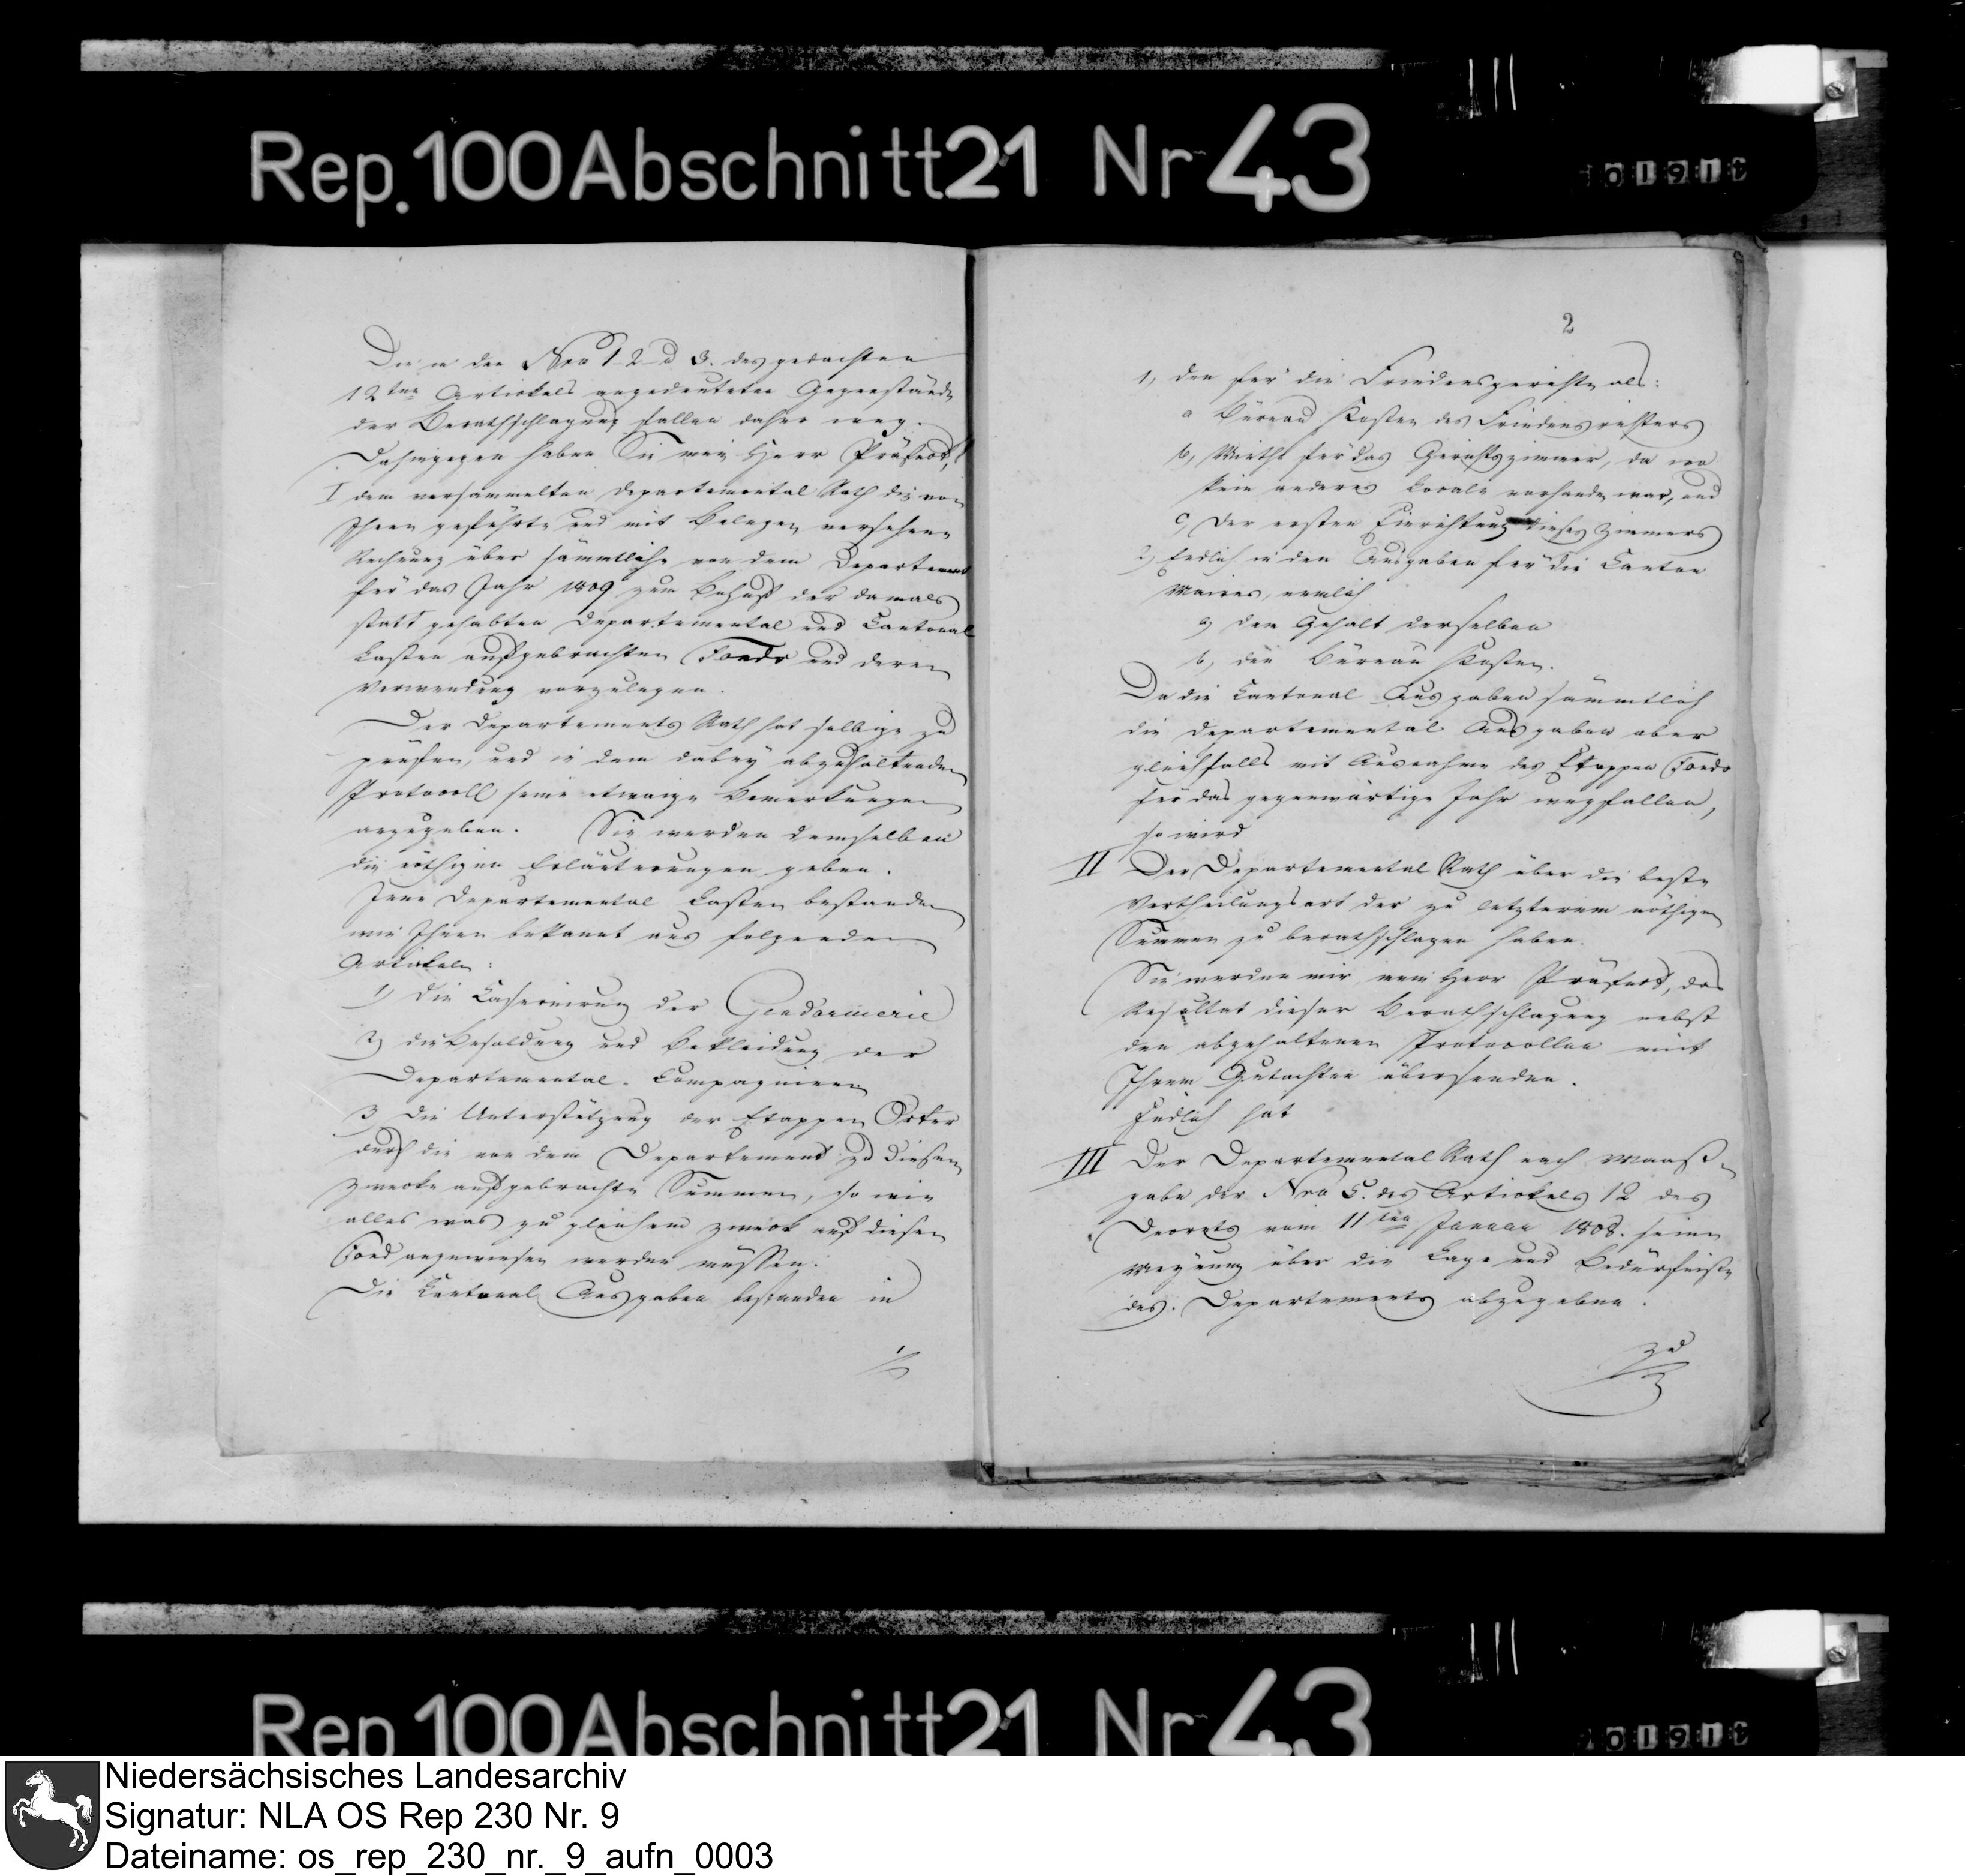 Rep. 100 Abschnitt 21 Nr 43
01918
Die in den Nro 1. 2. u 3. des gedachten
12ten Artickels angedeuteten Gegenstände
der Berathschlagung fallen daher weg.
Dahingegen haben Sie mein Herr Präfect,
I dem versammelten Departemental Rath die von
Ihnen geführte und mit Belegen versehene
Rechnung über sämmtliche von dem Departement
für das Jahr 1809 zum Behuf der damals
statt gehabten Departemental und Cantonal
Lasten aufgebrachten Fonds und deren
Verwendung vorzulegen.
Der Departements Rath hat selbige zu
prüfen, und in dem dabey abzuhaltenden
Protocoll seine etwaige Bemerkungen
anzugeben. Sie werden demselben
die nöthigen Erläuterungen geben.
Jene Departemental Lasten bestanden
wie Ihnen bekannt aus folgenden
Artikeln:
1) die Casernirung der Gendarmerie
2) die Besoldung und Bekleidung der
Departemental-Compagnieen
3) Die Unterstützung der Etappen Örter
durch die von dem Departement zu diesem
Zwecke aufgebrachte Summen, so wie
alles was zu gleichem Zweck auf diesen
Fond angewiesen werden müssen.
Die Cantonal Ausgaben bestanden in
2
1, den für die Friedensgerichte als:
a Büreau Kosten des Friedensrichters
b, Miethe für das Gerichtszimmer, da wo
kein anderes Locale vorhanden war, und
c, Der ersten Einrichtung dieses Zimmers
2, Endlich in den Ausgaben für die Canton
Maires, nemlich
a, dem Gehalt derselben
b, den Büreau Kosten.
Da die Cantonal Ausgaben sämmtlich
die Departemental Ausgaben aber
gleichfalls mit Ausnahme des Etappen Fonds
für das gegenwärtige Jahr wegfallen,
so wird
II Der Departemental Rath über die beste
Vertheilungsart der zu letzterem nöthigen
Summen zu berathschlagen haben.
Sie werden mir mein Herr Präfect, das
Resultat dieser Berathschlagung nebst
den abgehaltenen Protocollen mit
Ihrem Gutachten übersenden.
Endlich hat
III Der Departemental Rath nach Maaß-
gabe der Nro 5. des Artickels 12 des
Decrets vom 11ten Januar 1808. seine
Meynung über die Lage und Bedürfniße
des Departements abzugeben.
zu
Rep 100 Abschnitt 21 Nr 43
01918
Niedersächsisches Landesarchiv
Signatur: NLA OS Rep 230 Nr. 9
Dateiname: os_rep_230_nr._9_aufn_0003